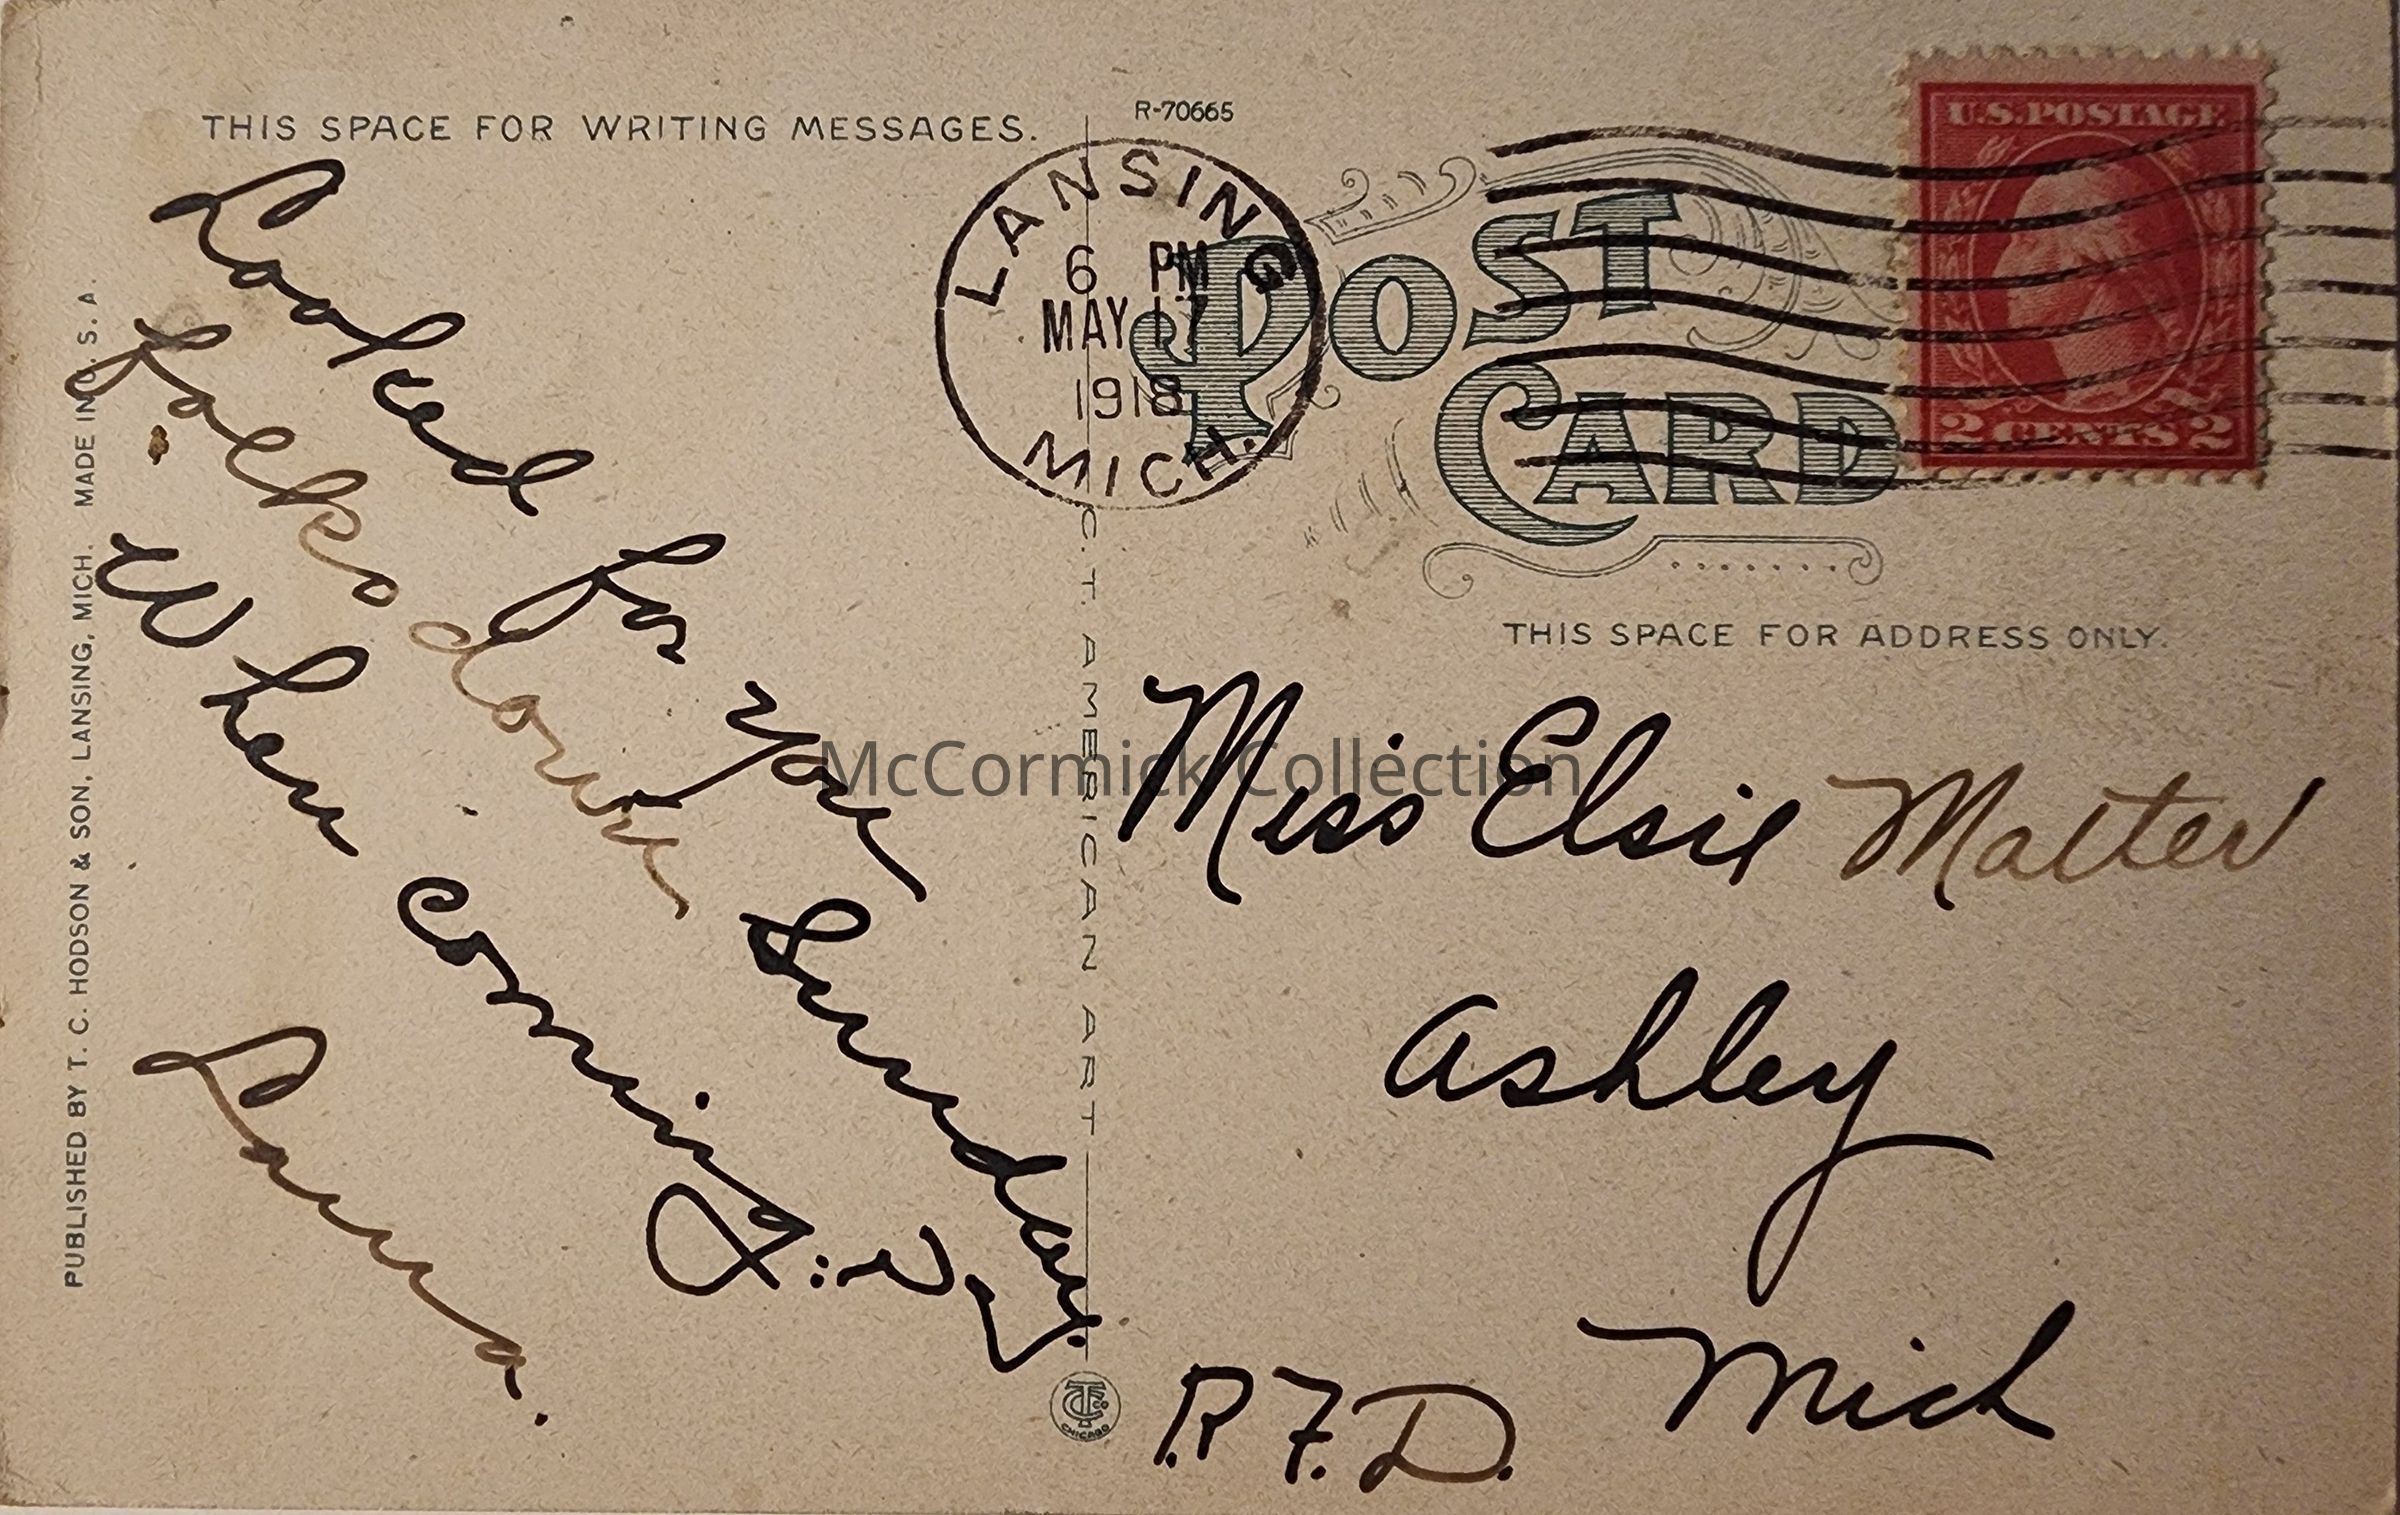 THIS SPACE FOR WRITING MESSAGES.
R-70665
LANSING
6 PM
MAY 17
1918
MICH.
POST
CARD
U.S. POSTAGE
2 CENTS 2
Looked for you
folks down Sunday.
When coming
Laura.
THIS SPACE FOR ADDRESS ONLY.
Miss Elsie Matter
Ashley
Mich
R.F.D.
PUBLISHED BY T. C. HODSON & SON, LANSING, MICH. MADE IN U. S. A.
C. T. AMERICAN ART
CHICAGO
McCormick Collection